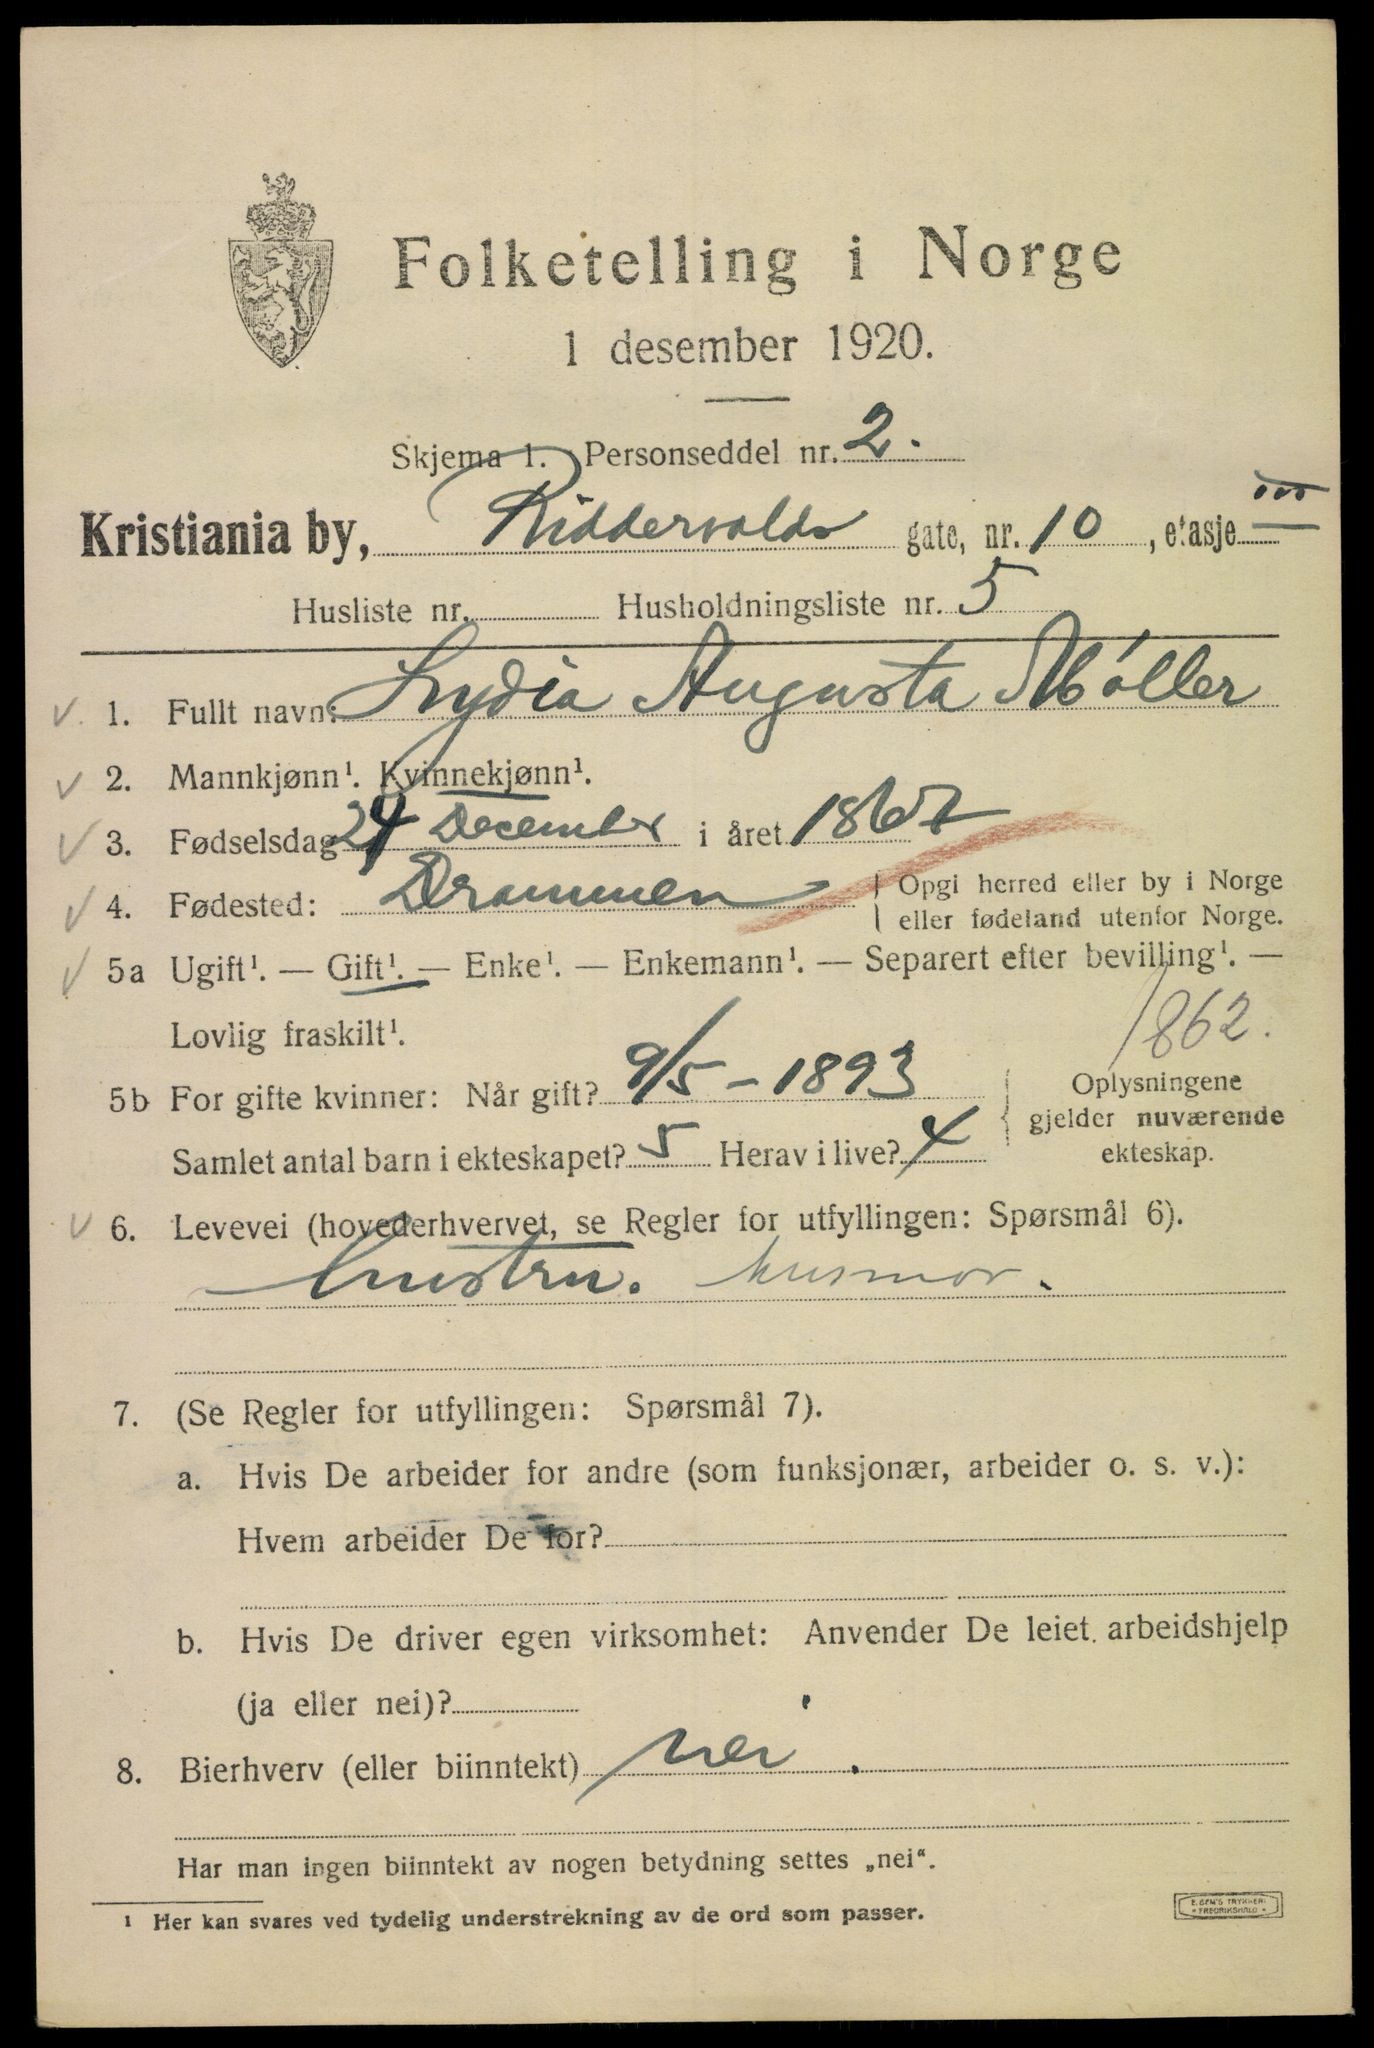 Folketelling i Norge
1 desember 1920.
Skjema 1. Personseddel nr. 2.
Kristiania by, Riddervolds gate, nr. 10, etasje III
Husliste nr. Husholdningsliste nr. 5
1. Fullt navn: Lydia Augusta Møller
2. Mannkjønn¹. Kvinnekjønn¹.
3. Fødselsdag 24 December i året 1867
4. Fødested: Drammen { Opgi herred eller by i Norge
eller fødeland utenfor Norge.
5a Ugift¹. — Gift¹. — Enke¹. — Enkemann¹. — Separert efter bevilling¹. —
Lovlig fraskilt¹.
1862.
5b For gifte kvinner: Når gift? 9/5 - 1893
Samlet antal barn i ekteskapet? 5 Herav i live? 4
{ Oplysningene
gjelder nuværende
ekteskap.
6. Levevei (hovederhvervet, se Regler for utfyllingen: Spørsmål 6).
hustru. husmor.
7. (Se Regler for utfyllingen: Spørsmål 7).
a. Hvis De arbeider for andre (som funksjonær, arbeider o. s. v.):
Hvem arbeider De for?
b. Hvis De driver egen virksomhet: Anvender De leiet arbeidshjelp
(ja eller nei)?
8. Bierhverv (eller biinntekt) nei.
Har man ingen biinntekt av nogen betydning settes „nei“.
¹ Her kan svares ved tydelig understrekning av de ord som passer.
E. SEM'S TRYKKERI
- FREDRIKSHALD -